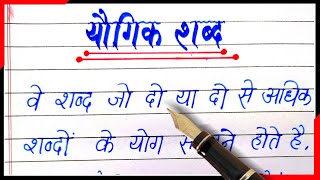 यौगिक शब्द
वे शब्द जो दो या दो से अधिक
शब्दों के योग से बने होते है,